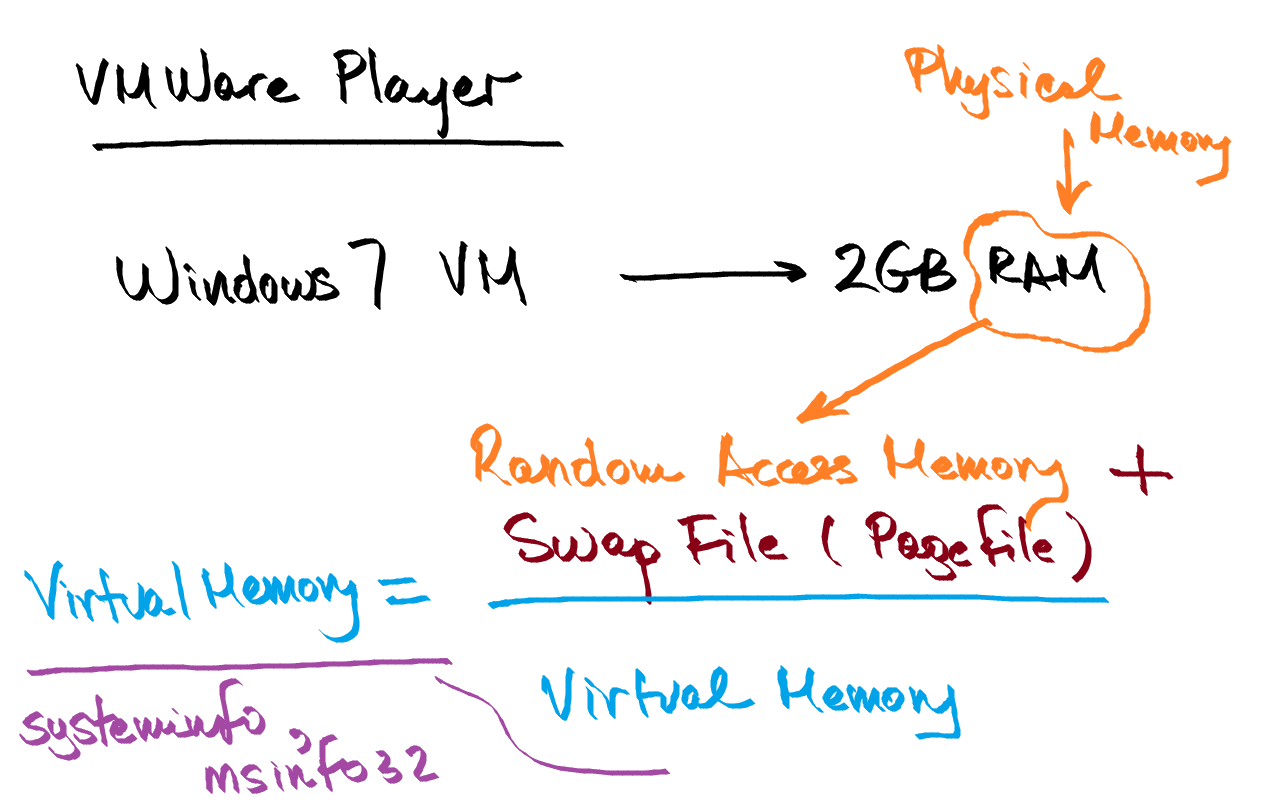 VMWare Player
Physical
Memory
Windows 7 VM → 2GB RAM
Random Access Memory +
Swap File (Pagefile)
Virtual Memory =
Virtual Memory
systeminfo,
msinfo32